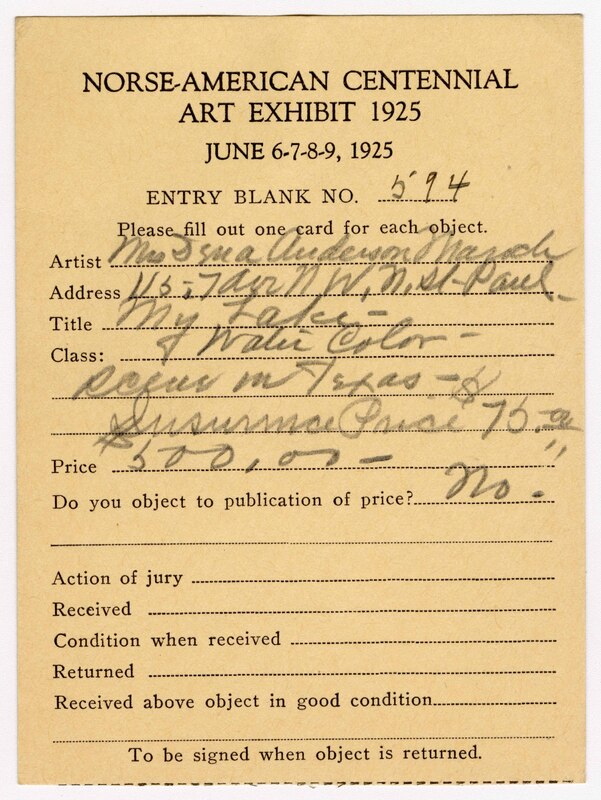 NORSE-AMERICAN CENTENNIAL
ART EXHIBIT 1925
JUNE 6-7-8-9, 1925
ENTRY BLANK NO. 594
Please fill out one card for each object.
Artist Mrs Dena Anderson
Address 115-7 Ave N W, N, St-Paul-
Title My Lake-
Class: Water Color-
scene in Texas-
Insurance Price 75.
Price $500,00-
Do you object to publication of price? No.
Action of jury
Received
Condition when received
Returned
Received above object in good condition
To be signed when object is returned.